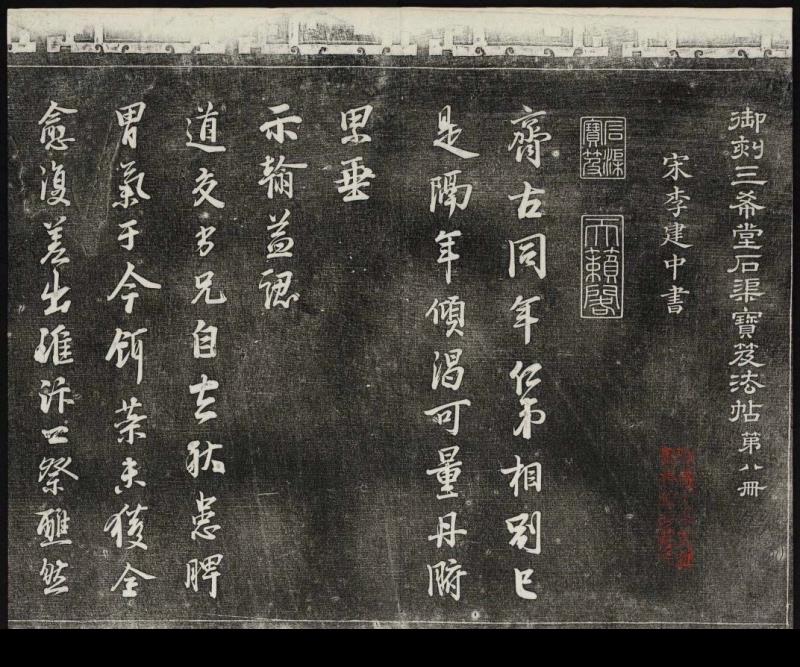 御刻三希堂石渠寶笈法帖第八冊
宋李建中書
石渠寶笈
天籟閣
齊古同年仁弟相別已
是隔年傾渴可量丹腑
思垂
示翰益認
道交也兄自去秋患脾
胃氣于今餌藥未獲全
愈復羞出雖沐口祭醮然